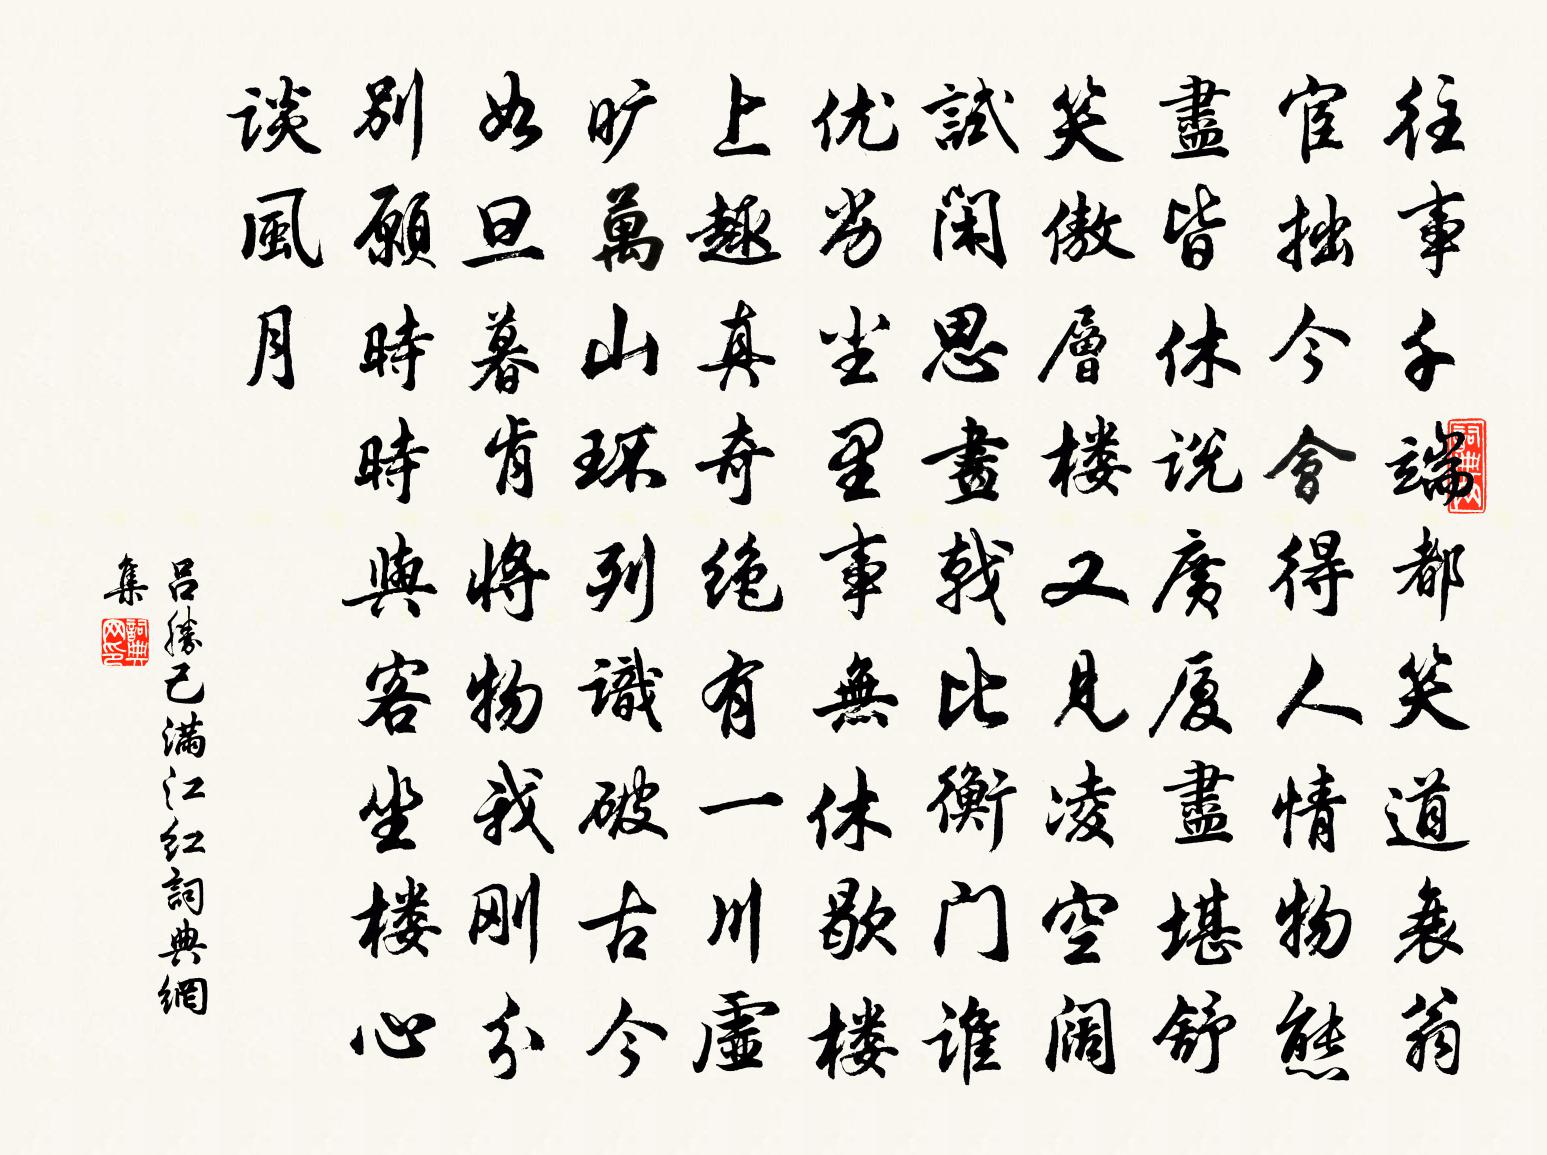 往事千端都笑道衰翁
宦拙今會得人情物態
盡皆休说廣厦盡堪舒
笑傲層楼又見凌空闊
試閑思畫戟比衡门谁
优劣尘里事無休歇楼
上趣真奇绝有一川虚
旷萬山环列識破古今
如旦暮肯将物我刚分
别願時時與客坐楼心
谈風月
吕勝己滿江红詞典網
集
詞典网
詞典网印